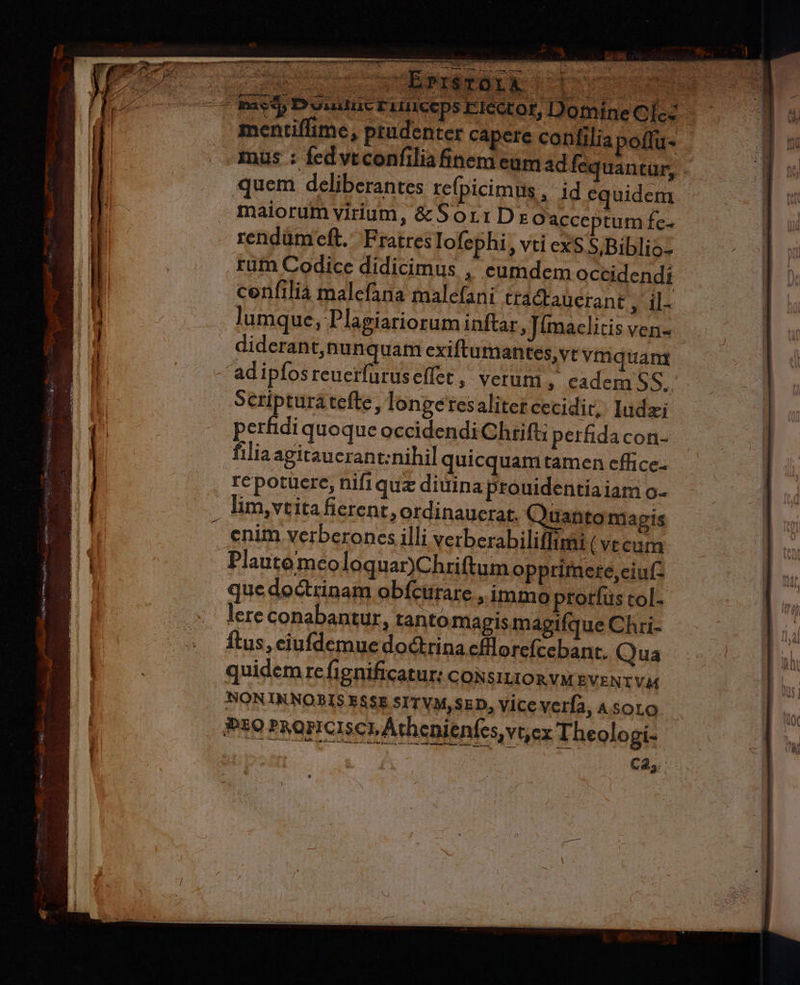 EPISTOLA
Princeps Elector, Domine Cle-
mentiſſime, prudenter capere conſilia poſſu-
mus : ſed vt conſilia finem eum ad ſequantur,
quem deliberantes reſpicimus, id equidem
maiorum virium, & SOLI DEO acceptum fe-
rendùm eſt. Fratres Ioſephi, vti ex SS. Biblio-
rum Codice didicimus, eumdem occidendi
conſilia maleſana maleſani tractauerant, il-
lumque, Plagiariorum inſtar, Jſmaelitis ven-
diderant, nunquam exiſtumantes, vt vmquam
ad ipſos reuerſurus eſſet, verum, eadem SS.
Scriptura teſte, longe res aliter cecidit. Iudæi
perfidi quoque occidendi Chriſti perfida con-
ſilia agitauerant: nihil quicquam tamen effice-
re potuere, niſi quæ diuina prouidentia iam o-
lim, vti ita fierent, ordinauerat. Quanto magis
enim verberones illi verberabiliſſimi (vt cum
Plauto meo loquar) Chriſtum opprimere, eiuſ-
que doctrinam obſcurare, immo prorſus tol-
lere conabantur, tanto magis magiſque Chri-
ſtus, eiuſdemue doctrina effloreſcebant. Qua
quidem re ſignificatur: CONSILIORVM EVENTVM
NON IN NOBIS ESSE SITVM, SED, vice verſa, A SOLO
DEO PROFICISCI. Athenienſes, vt, ex Theologi-
ca,